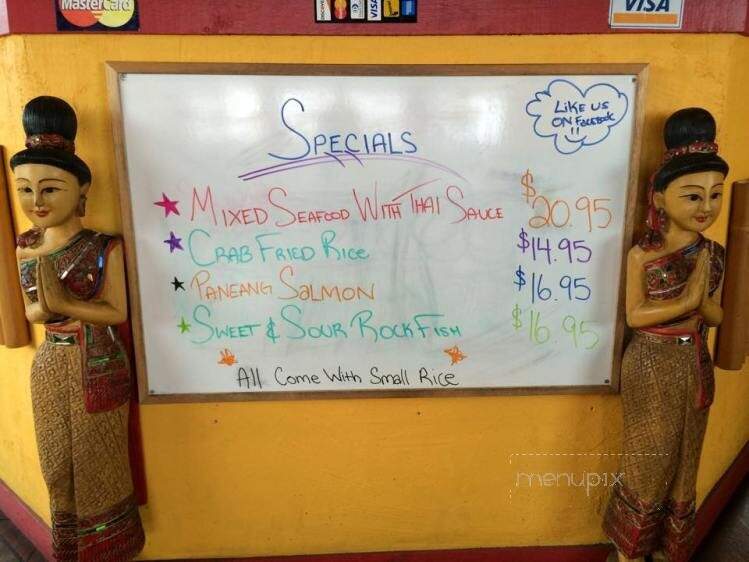 MasterCard
VISA
VISA
SPECIALS
LIKE US
ON FACEBOOK
MIXED SEAFOOD WITH THAI SAUCE $20.95
CRAB FRIED RICE $14.95
PANEANG SALMON $16.95
SWEET & SOUR ROCK FISH $16.95
All Come With Small Rice
menupix